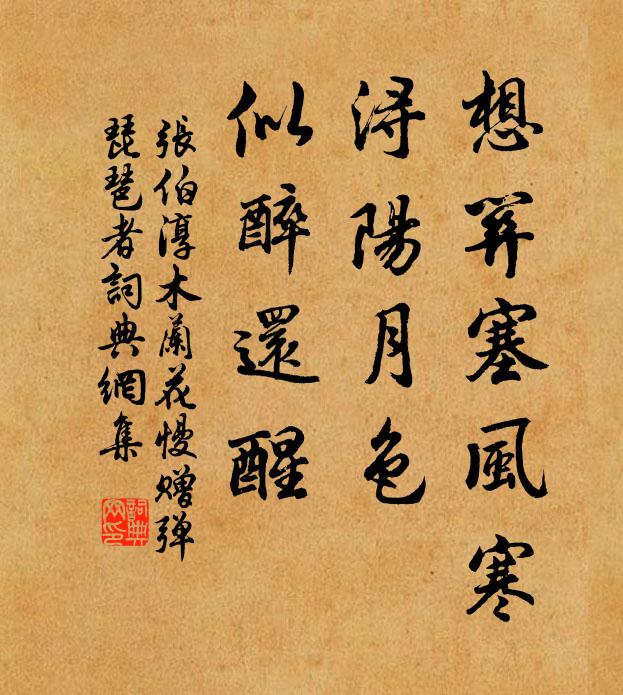 想關塞風寒
浔陽月色
似醉還醒
張伯淳木蘭花慢贈弹
琵琶者詞典網集
詞典
网印